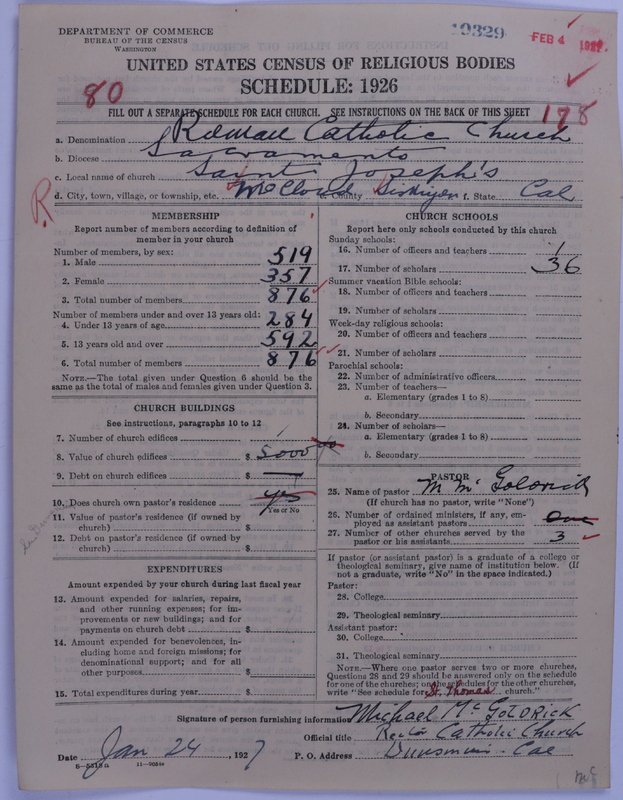 DEPARTMENT OF COMMERCE
BUREAU OF THE CENSUS
WASHINGTON
19329
FEB 4 1927
UNITED STATES CENSUS OF RELIGIOUS BODIES
SCHEDULE: 1926
80
178
FILL OUT A SEPARATE SCHEDULE FOR EACH CHURCH. SEE INSTRUCTIONS ON THE BACK OF THIS SHEET
a. Denomination Roman Catholic Church
b. Diocese Sacramento
c. Local name of church Saint Joseph's
d. City, town, village, or township, etc. McCloud e. County Siskiyou f. State Cal
R
MEMBERSHIP
Report number of members according to definition of
member in your church
Number of members, by sex:
1. Male 519
2. Female 357
3. Total number of members 876
Number of members under and over 13 years old:
4. Under 13 years of age 284
5. 13 years old and over 592
6. Total number of members 876
NOTE.—The total given under Question 6 should be the
same as the total of males and females given under Question 3.
CHURCH BUILDINGS
See instructions, paragraphs 10 to 12
7. Number of church edifices 1
8. Value of church edifices $ 5000 00
9. Debt on church edifices $ —
10. Does church own pastor's residence yes
Yes or No
11. Value of pastor's residence (if owned by
church) $
12. Debt on pastor's residence (if owned by
church) $
EXPENDITURES
Amount expended by your church during last fiscal year
13. Amount expended for salaries, repairs,
and other running expenses; for im-
provements or new buildings; and for
payments on church debt $
14. Amount expended for benevolences, in-
cluding home and foreign missions; for
denominational support; and for all
other purposes $
15. Total expenditures during year $
CHURCH SCHOOLS
Report here only schools conducted by this church
Sunday schools:
16. Number of officers and teachers 1
17. Number of scholars 36
Summer vacation Bible schools:
18. Number of officers and teachers
19. Number of scholars
Week-day religious schools:
20. Number of officers and teachers
21. Number of scholars
Parochial schools:
22. Number of administrative officers
23. Number of teachers—
a. Elementary (grades 1 to 8)
b. Secondary
24. Number of scholars—
a. Elementary (grades 1 to 8)
b. Secondary
PASTOR
25. Name of pastor M McGoldrick
(If church has no pastor, write "None")
26. Number of ordained ministers, if any, em-
ployed as assistant pastors One
27. Number of other churches served by the
pastor or his assistants 3
If pastor (or assistant pastor) is a graduate of a college or
theological seminary, give name of institution below. (If
not a graduate, write "No" in the space indicated.)
Pastor:
28. College
29. Theological seminary
Assistant pastor:
30. College
31. Theological seminary
NOTE.—Where one pastor serves two or more churches,
Questions 28 and 29 should be answered only on the schedule
for one of the churches; on the schedules for the other churches,
write "See schedule for St. Thomas church."
Signature of person furnishing information Michael McGoldrick
Official title Rector Catholic Church
Date Jan 24, 1927 P. O. Address Dunsmuir - Cal
6-5515a 11-8054a